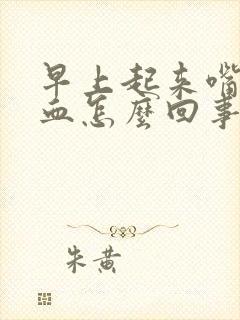 早上起来嘴
血怎麼回事
朱黄